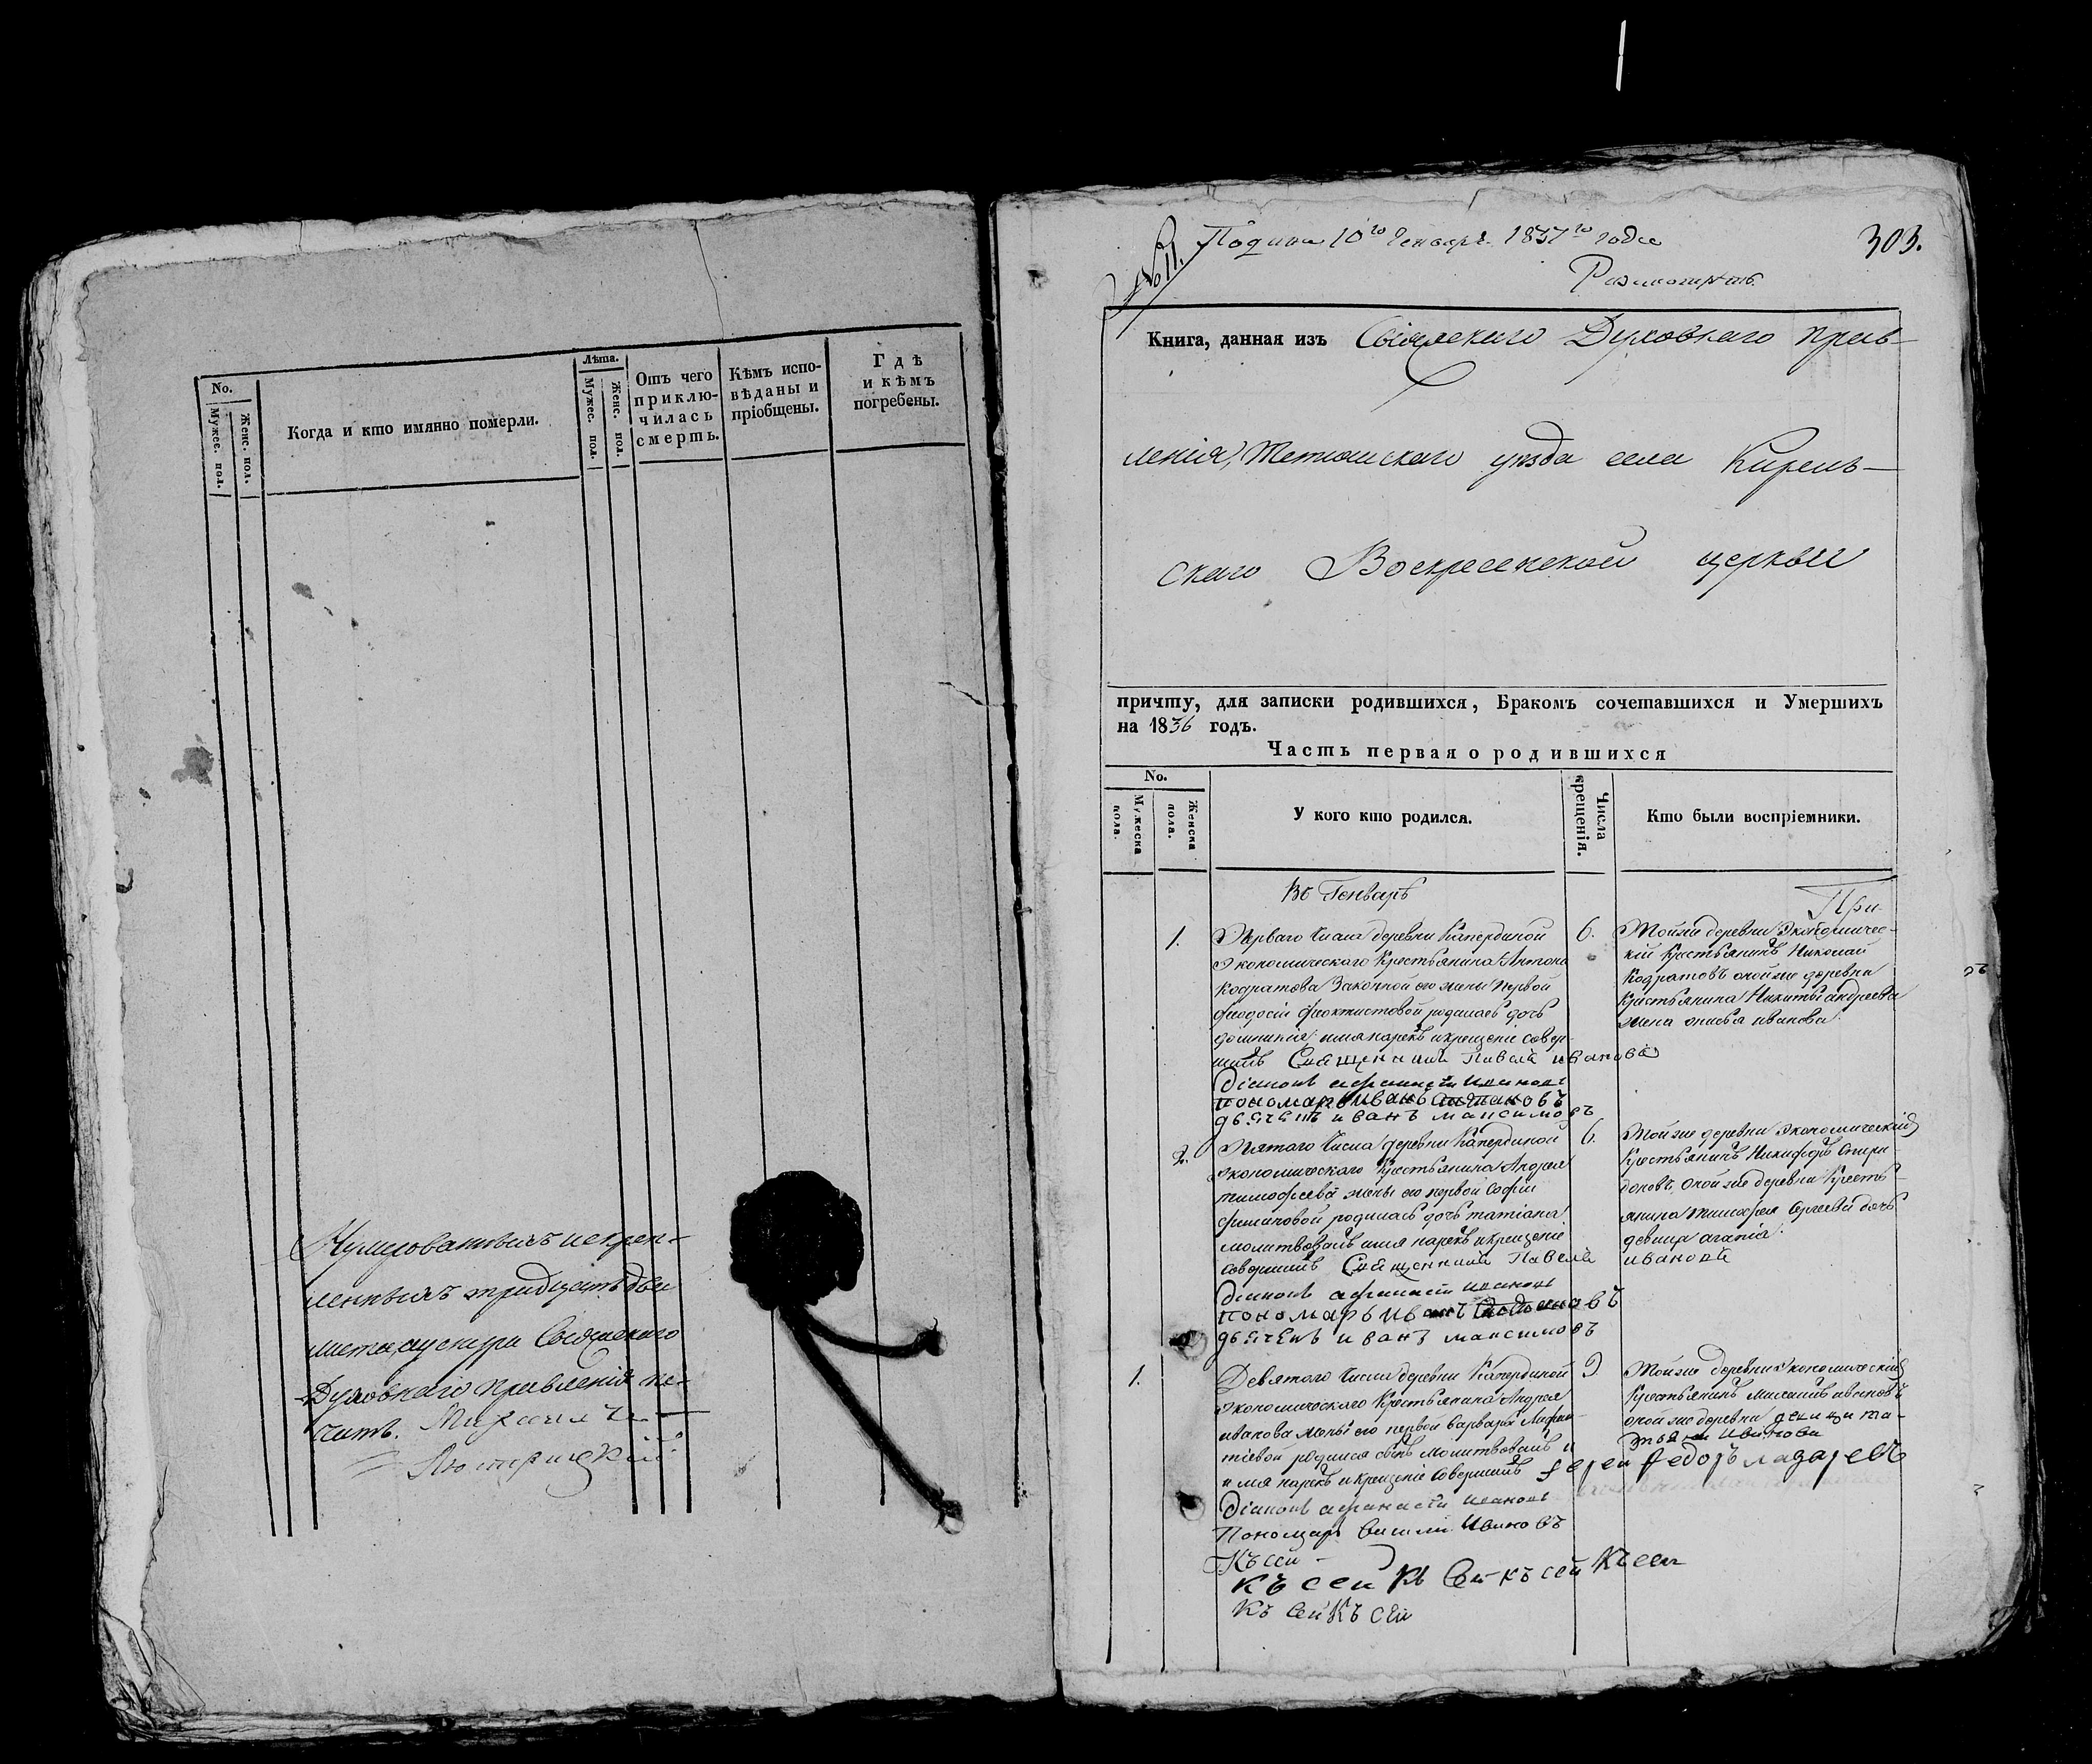 No.
Мужес. пол.
Женс. пол.
Когда и кто имянно померли.
Лѣта.
Мужес. пол.
Женс. пол.
Отъ чего
приклю-
чилась
смерть.
Кѣмъ испо-
вѣданы и
пріобщены.
Гдѣ
и кѣмъ
погребены.
Нумерованныхъ и скреп-
ленныхъ тридцать два
листа, у сихъ Свіяжскаго
Духовнаго Правленія пе-
чать.
№ 11. Подана 10го Генваря 1837го года
303.
Разсмотрѣть
Книга, данная изъ Свіяжскаго Духовнаго прав-
ленія, Тетюшскаго уѣзда села Кирель-
скаго Воскресенской церкви
причту, для записки родившихся, Бракомъ сочетавшихся и Умершихъ
на 1836 годъ.
Часть первая о родившихся
No.
Мужеска пола.
Женска пола.
У кого кто родился.
Числа крещенія.
Кто были воспріемники.
Въ Генварѣ
При
1.
Перваго числа деревни Капердиной
экономическаго крестьянина Антона
Кодратова законной его жены первой
феодосіи феоктистовой родилась дочь
домникія имя нарекъ и крещеніе совер-
шилъ Священникъ Павелъ ивановъ
Діаконъ афанасіи ивановъ
пономарь иванъ степановъ
дьячекъ иванъ максимовъ
6.
Тойже деревни Экономичес-
кій крестьянинъ Николай
Кодратовъ онойже деревни
крестьянина Никиты андреева
жена анисья иванова.
2.
Пятаго числа деревни Капердиной
экономическаго крестьянина Андрея
тимофеева жены его первой Софіи
филиповой родилась дочь татіана
молитвовалъ имя нарекъ и крещеніе
совершилъ Священникъ Павелъ ивановъ
Діаконъ афанасіи ивановъ
пономарь иванъ степановъ
дьячекъ иванъ максимовъ
6.
Тойже деревни экономическій
крестьянинъ Никифоръ Спири-
доновъ, онойже деревни кресть-
янина тимофея Сергеева дочь
девица агапіа.
1.
Девятаго числа деревни Капердиной
экономическаго крестьянина Андрея
иванова жены его первой варвары
родился сынъ молитвовалъ и
имя нарекъ и крещеніе совершилъ Іереи Федоръ лазаревъ
Діаконъ афанасіи ивановъ
Пономарь Василіи Ивановъ
9.
Тойже деревни экономическій
крестьянинъ михаилъ ивановъ
онойже деревни девица та-
тьяна Иванова
Къ сеи
къ сеи къ сеи къ сеи Къ сеи
къ сеи къ сеи